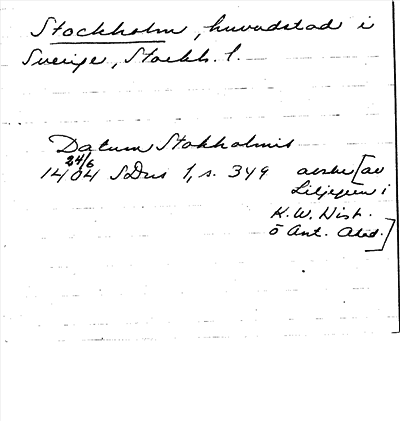 Stockholm, huvudstad i
Sverige, Stockh. l.
Datum Stokholmis
24/6
1404 SDns 1, s. 349 avskr [av
Liljegren i
K. W. Hist.
o Ant. Akad.]